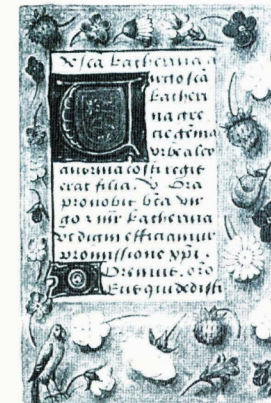 De sca katherina a
Virgo sca
katheri
na gre
cie gema
vrbe alex
andrina costi regit
erat filia. V. Ora
pro nobis bea vir
go z mr katherina
Vt digni efficiamur
promissione xpi.
Oremus. oro
Deus qui dedisti